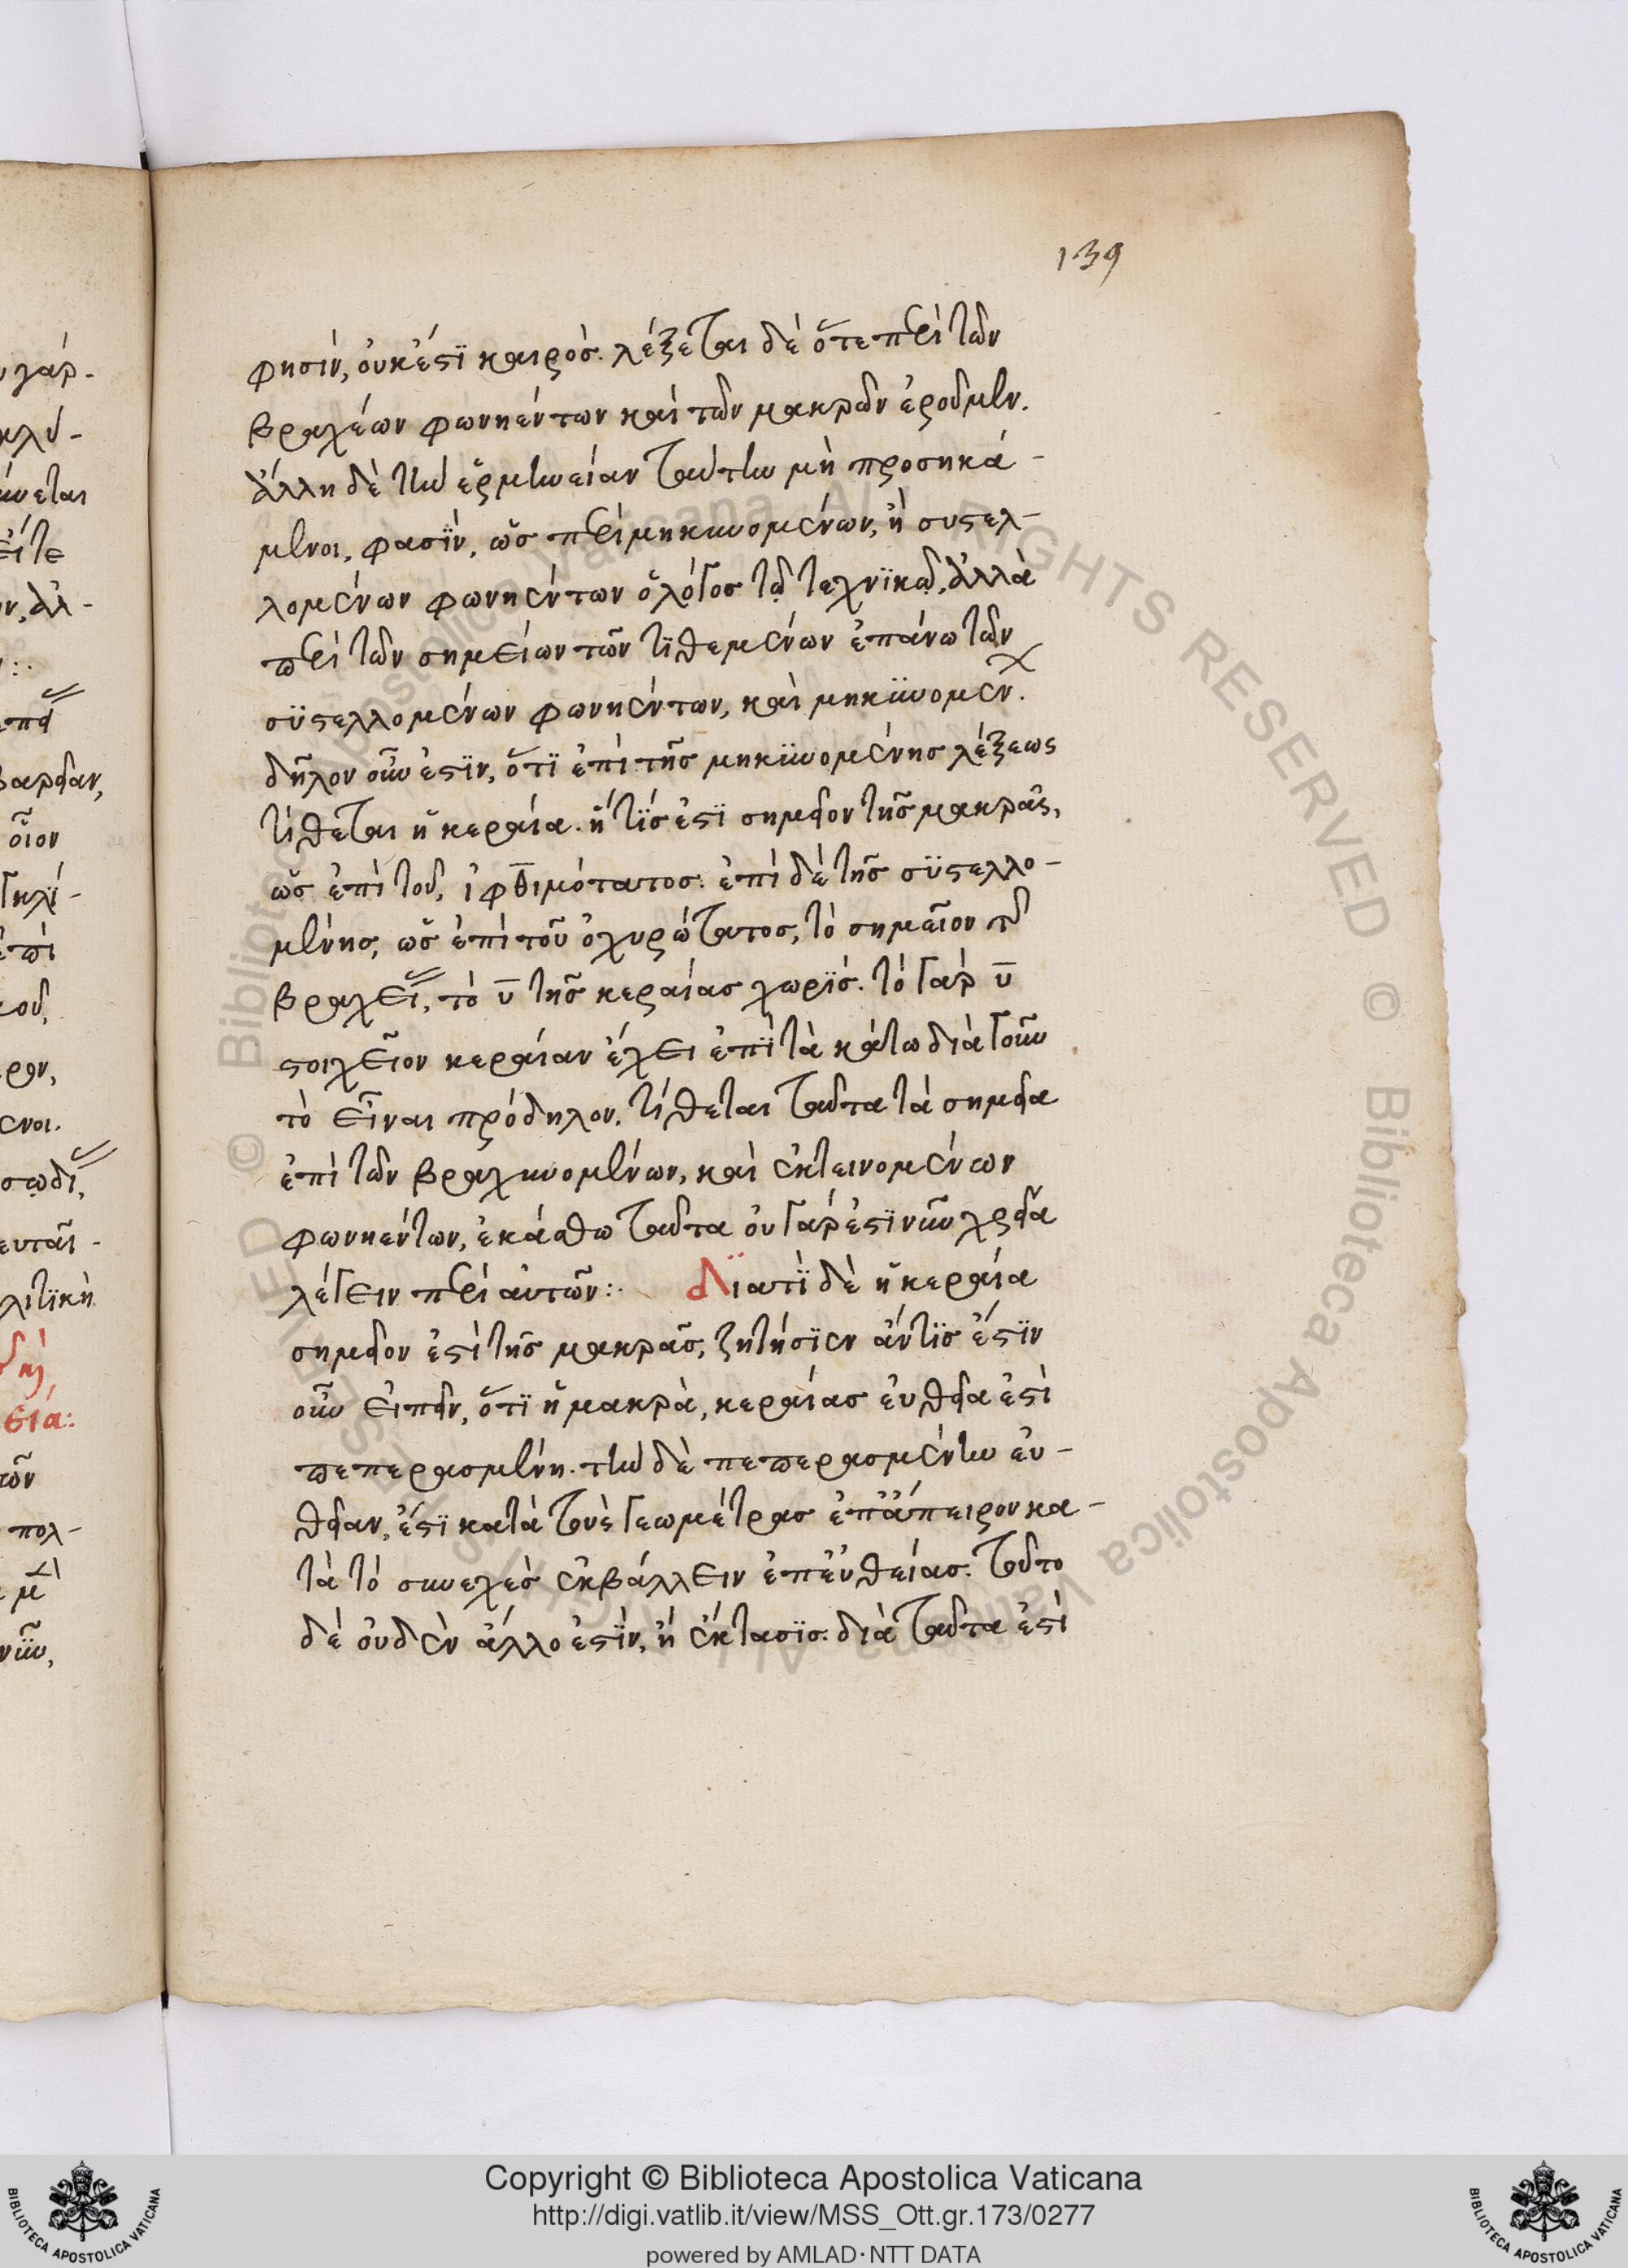 139
φησίν, οὐκ ἔστι καιρός. λέξεται δὲ ὅτε περὶ τῶν
βραχέων φωνηέντων καὶ τῶν μακρῶν ἐροῦμεν.
ἄλλη δὲ τὴν ἑρμηνείαν ταύτην μὴ προσηκά-
μενοι, φασὶν, ὡς περὶ μηκυνομένων, ἢ συστελ-
λομένων φωνηέντων ὁ λόγος τῷ τεχνικῷ, ἀλλὰ
περὶ τῶν σημείων τῶν τιθεμένων ἐπάνω τῶν
συστελλομένων φωνηέντων, καὶ μηκυνομέν.
δῆλον οὖν ἐστιν, ὅτι ἐπὶ τῆς μηκυνομένης λέξεως
τίθεται ἡ κεραία. ἥ τίς ἐστι σημεῖον τῆς μακρᾶς,
ὡς ἐπὶ τοῦ, ἰφθιμότατος. ἐπὶ δὲ τῆς συστελλο-
μένης, ὡς ἐπὶ τοῦ ὀχυρώτατος, τὸ σημεῖον τοῦ
βραχεῖ, τὸ υ τῆς κεραίας χωρίς. τὸ γὰρ υ
στοιχεῖον κεραίαν ἔχει ἐπὶ τὰ κάτω διὰ γοῦν
τὸ εἶναι πρόδηλον. τίθεται ταῦτα τὰ σημεῖα
ἐπὶ τῶν βραχυνομένων, καὶ ἐκτεινομένων
φωνηέντων, ἐκάστω ταῦτα οὐ γάρ ἐστι νῦν χρεῖα
λέγειν περὶ αὐτῶν:. Διατὶ δὲ ἡ κεραία
σημεῖον ἐστὶ τῆς μακρᾶς, ζητήσιεν ἄν τις ἔστιν
οὖν εἰπεῖν, ὅτι ἡ μακρὰ, κεραίας εὐθεῖα ἐστὶ
πεπερασμένη. τὴν δὲ πεπερασμένην εὐ-
θεῖαν, ἔστι κατὰ τοὺς γεωμέτρας ἐπ' ἄπειρον κα-
τὰ τὸ συνεχὲς ἐκβάλλειν ἐπ' εὐθείας. τοῦτο
δὲ οὐδὲν ἄλλο ἐστὶν, ἢ ἔκτασις. διὰ ταῦτα ἐστὶ
Copyright © Biblioteca Apostolica Vaticana
http://digi.vatlib.it/view/MSS_Ott.gr.173/0277
powered by AMLAD·NTT DATA